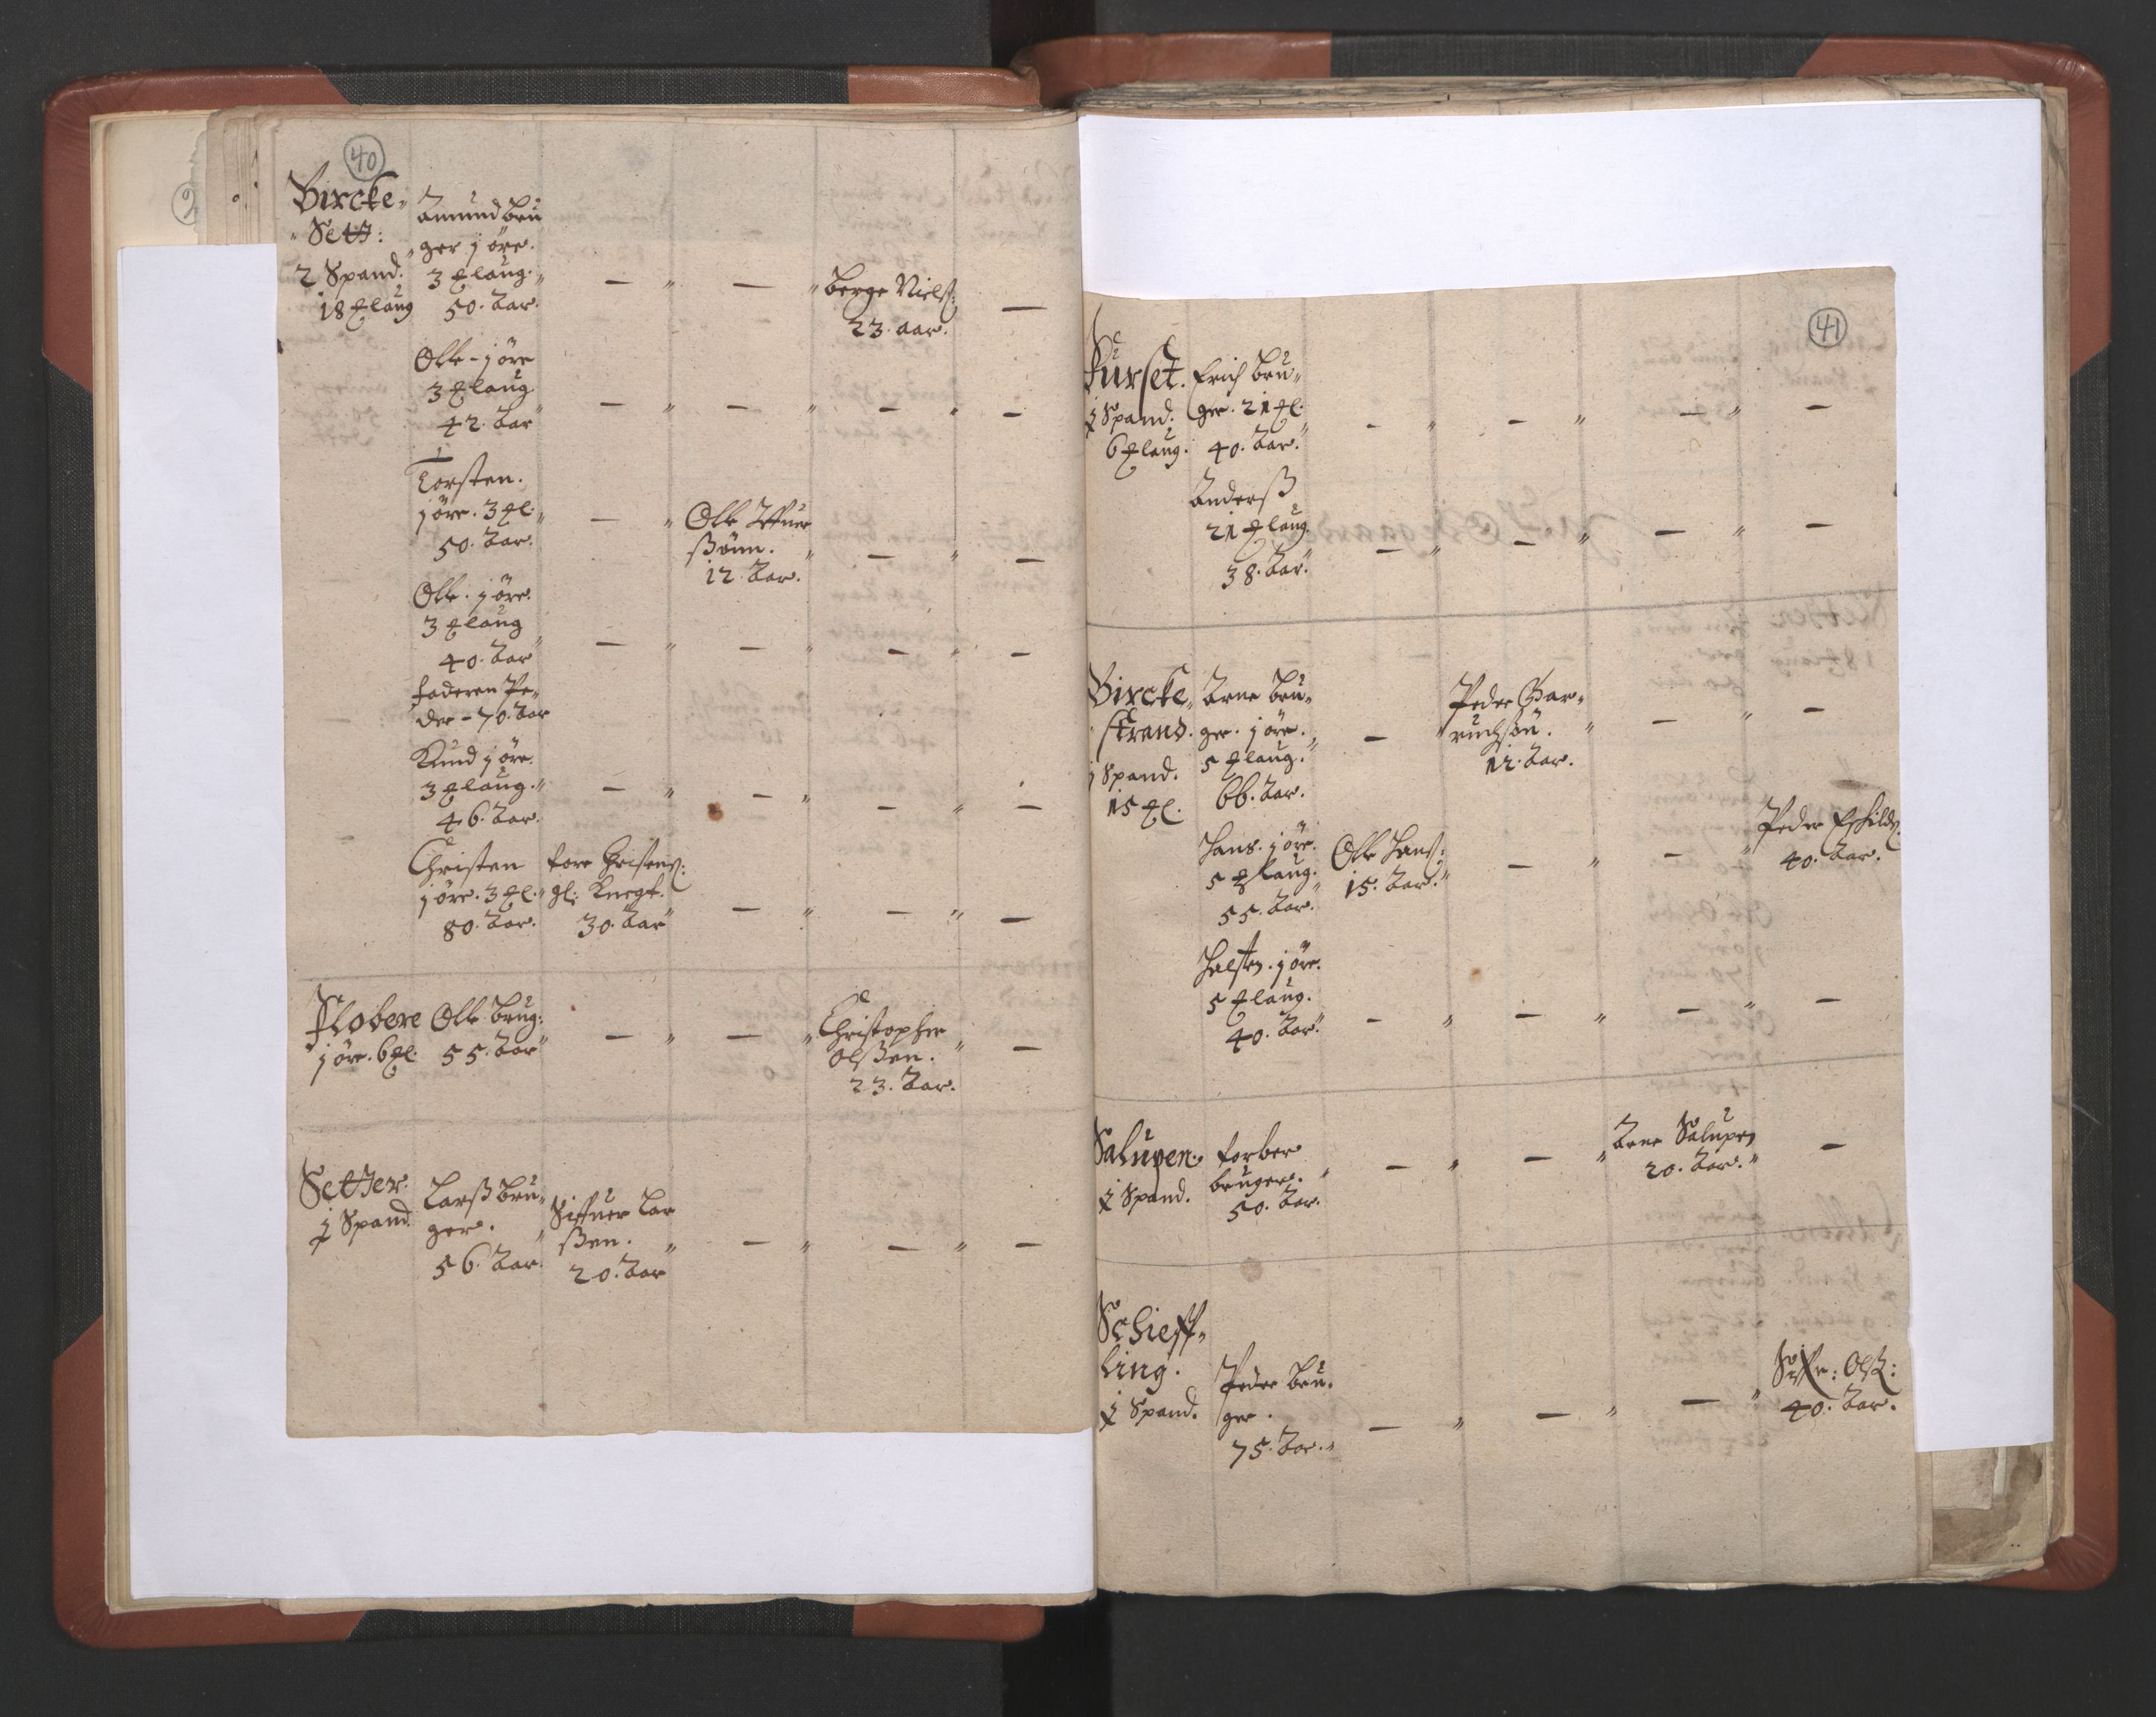 40
Bircke-
Sett:
2 Spand.
18 ℔laug
Amund bru
ger j öre.
3 ℔laug.
50. Aar.
Berge Niels:
23. aar.
Olle - j öre
3 ℔laug
42. Aar
Torsten.
j öre. 3 ℔l.
50. Aar.
Olle
ßönn.
12. Aar.
Olle. j öre.
3 ℔laug
40. Aar
faderen Pe-
der - 70. Aar
Knud j öre.
3 ℔laug.
46. Aar.
Christen
j öre. 3 ℔l.
80. Aar.
Tore Christens:
gl: Knegt.
30. Aar
Flobere
j öre. 6 ℔l.
Olle brug:
55. Aar
Christopher
Olßen.
23. Aar.
Setter.
½ Spand.
Larß bru-
ger.
56. Aar.
Siffuer Lar
ßen.
20. Aar
41
Furset.
½ Spand.
6 ℔laug.
Erich bru-
ger. 21 ℔l.
40. Aar.
Anderß
21 ℔laug.
38. Aar.
Bircke-
strand.
j Spand.
15 ℔l.
Arne bru-
ger. j öre.
5 ℔laug.
66. Aar.
Peder
12. Aar.
Hans. j öre.
5 ℔laug.
55. Aar.
Olle Hans:
15. Aar.
Peder Eschilds:
40. Aar.
Halsten. j öre.
5 ℔laug.
40. Aar.
Salupen.
½ Spand.
Torber
bruger.
50. Aar.
Arne Salupen
20. Aar.
Schieff-
ling.
½ Spand.
Peder bru-
ger.
75. Aar.
Olß:
40. Aar.